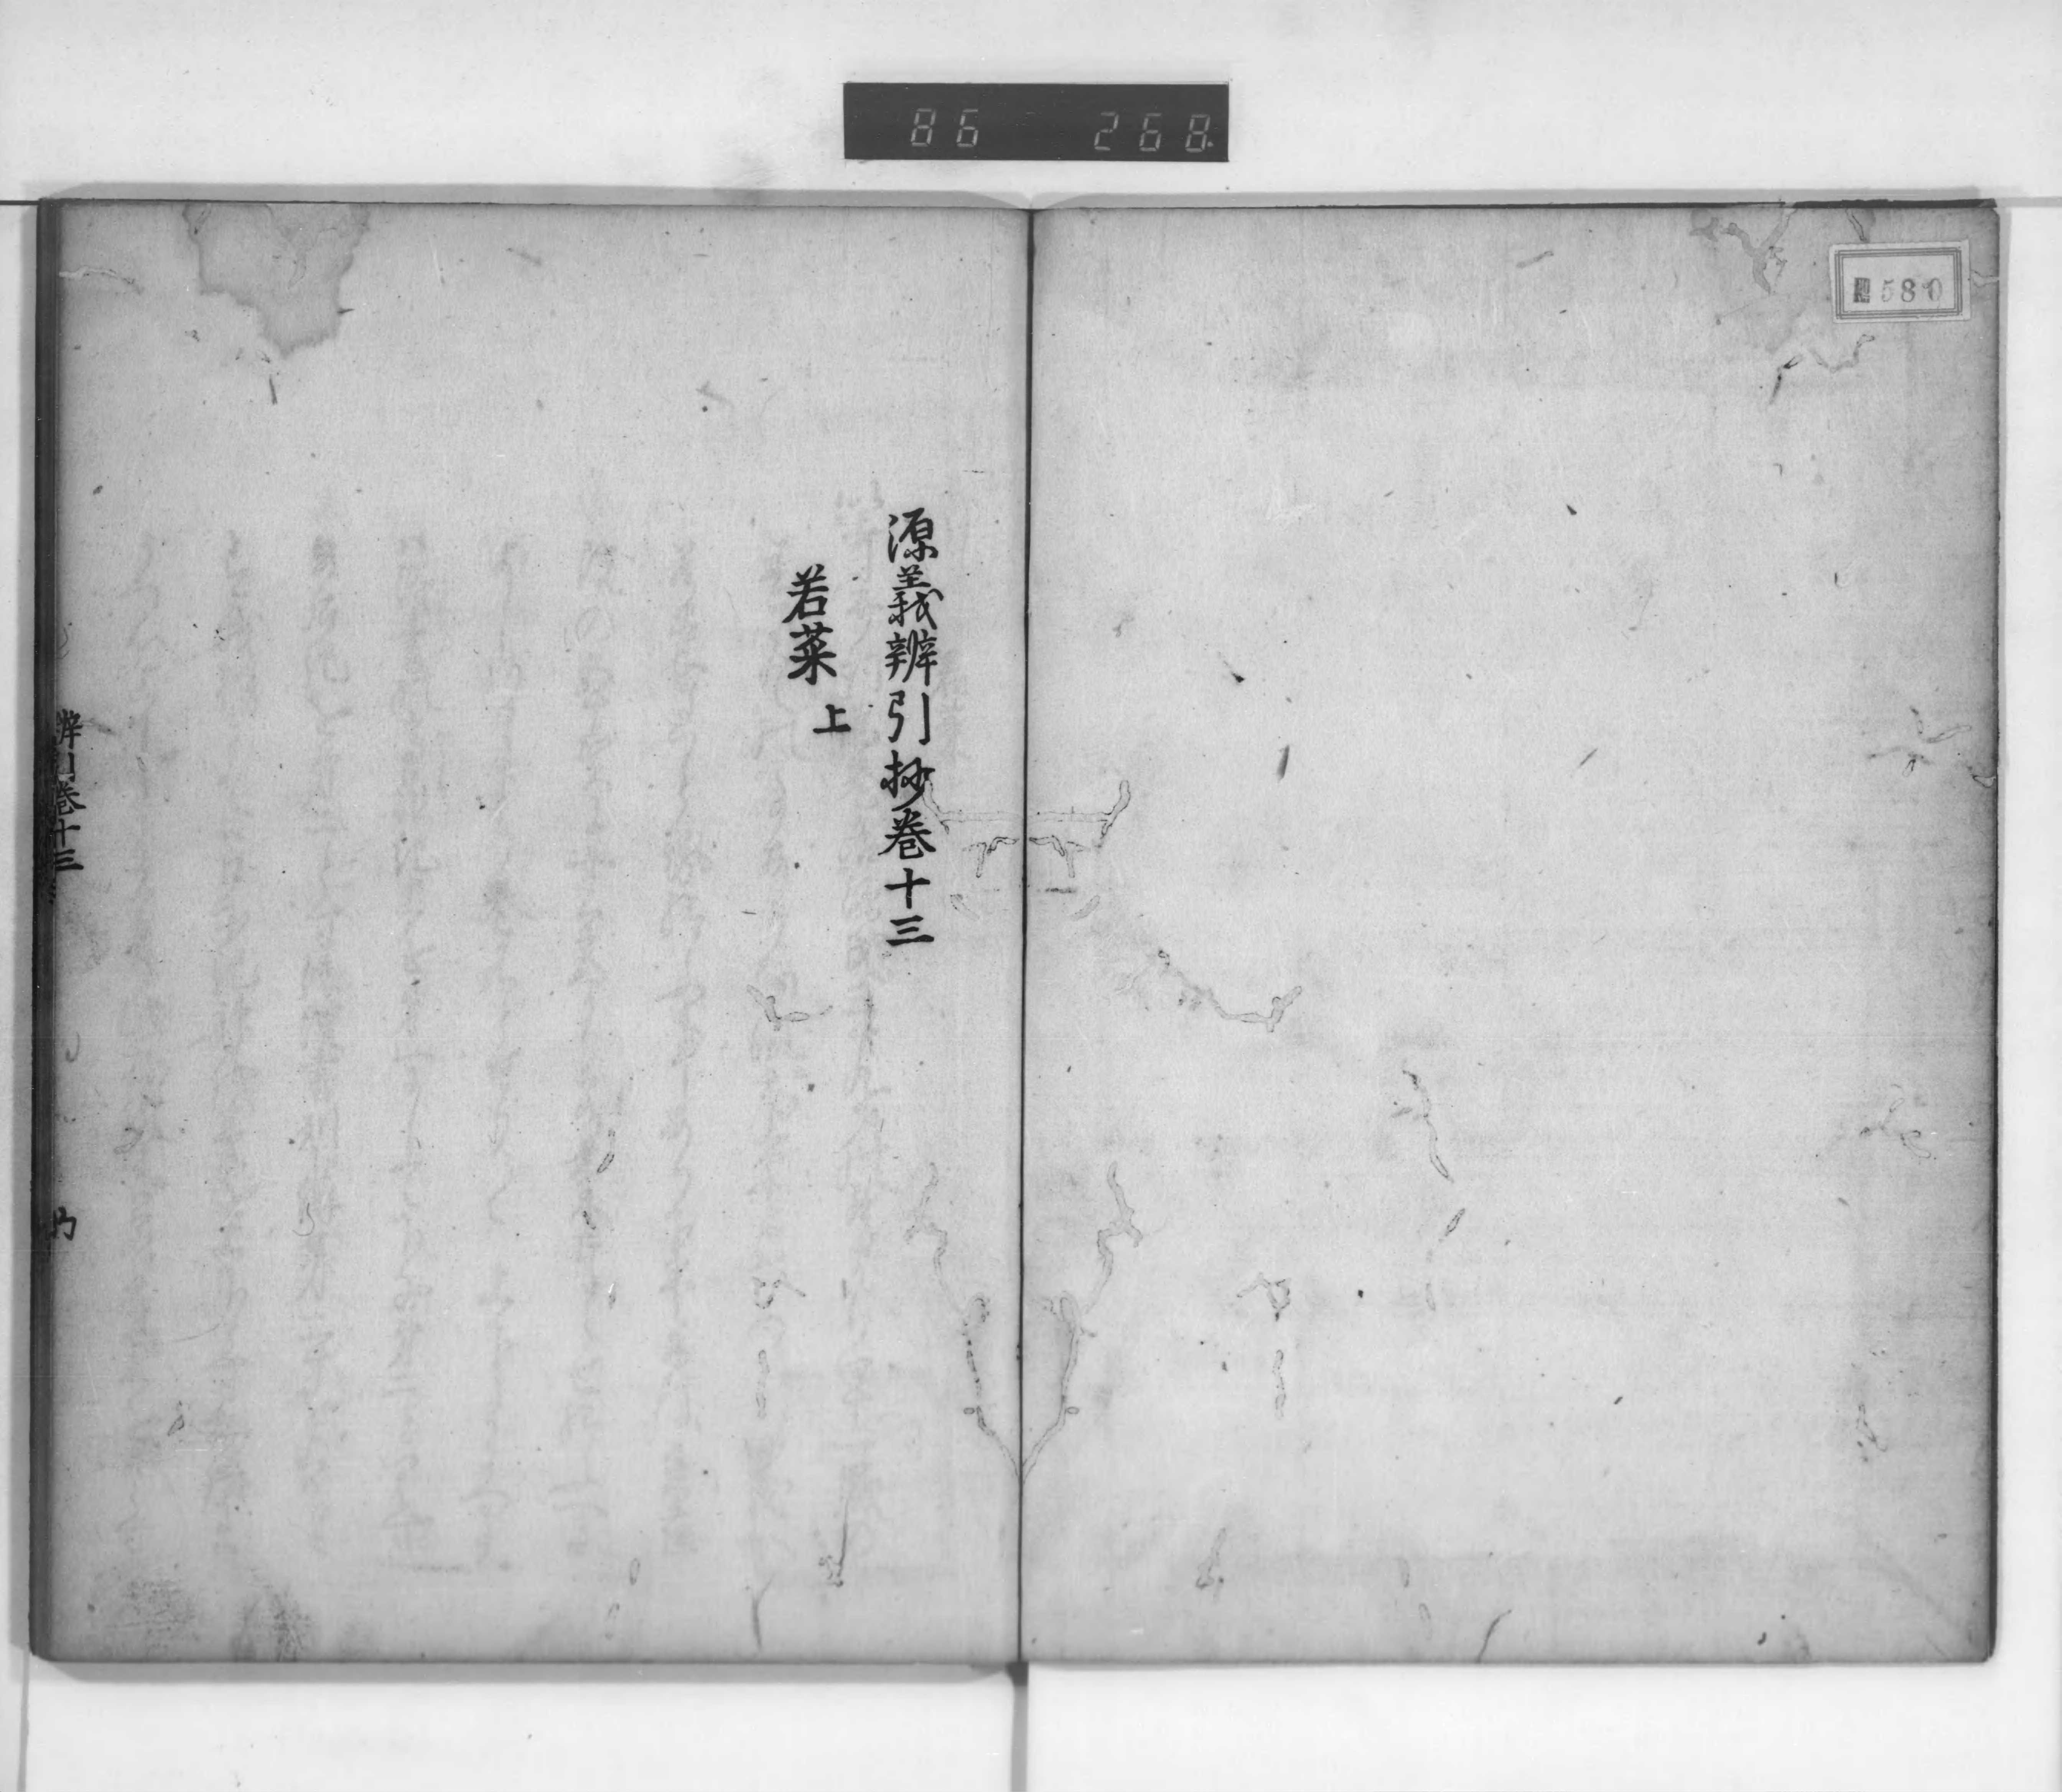 86 268
580
源義辨引抄巻十三
若菜 上
辨引巻十三